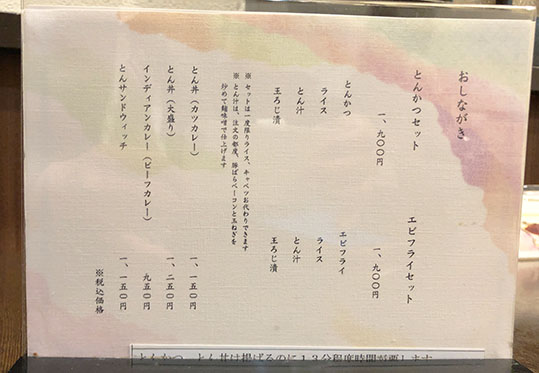 おしながき
とんかつセット
一、九〇〇円
とんかつ
ライス
とん汁
玉ろじ漬
エビフライセット
一、九〇〇円
エビフライ
ライス
とん汁
玉ろじ漬
※ セットは一度限りライス、キャベツお代わりできます
※ とん汁は、注文の都度、豚ばらベーコンと玉ねぎを
炒めて麹味噌で仕上げます
とん丼（カツカレー） 一、一五〇円
とん丼（大盛り） 一、二五〇円
インディアンカレー（ビーフカレー） 九五〇円
とんサンドウィッチ 一、一五〇円
※税込価格
とんかつ、とん丼は揚げるのに１３分程度時間が要します